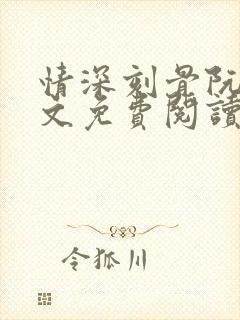 情深刻骨阮
文免費閱讀
令狐川